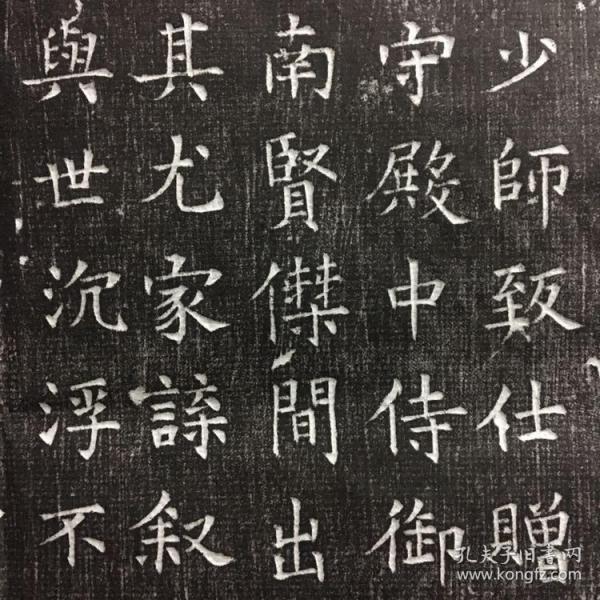 少師致仕贈
守殿中侍御
南賢傑間出
其尤家諜叙
與世沉浮不
孔夫子旧书网
www.kongfz.com